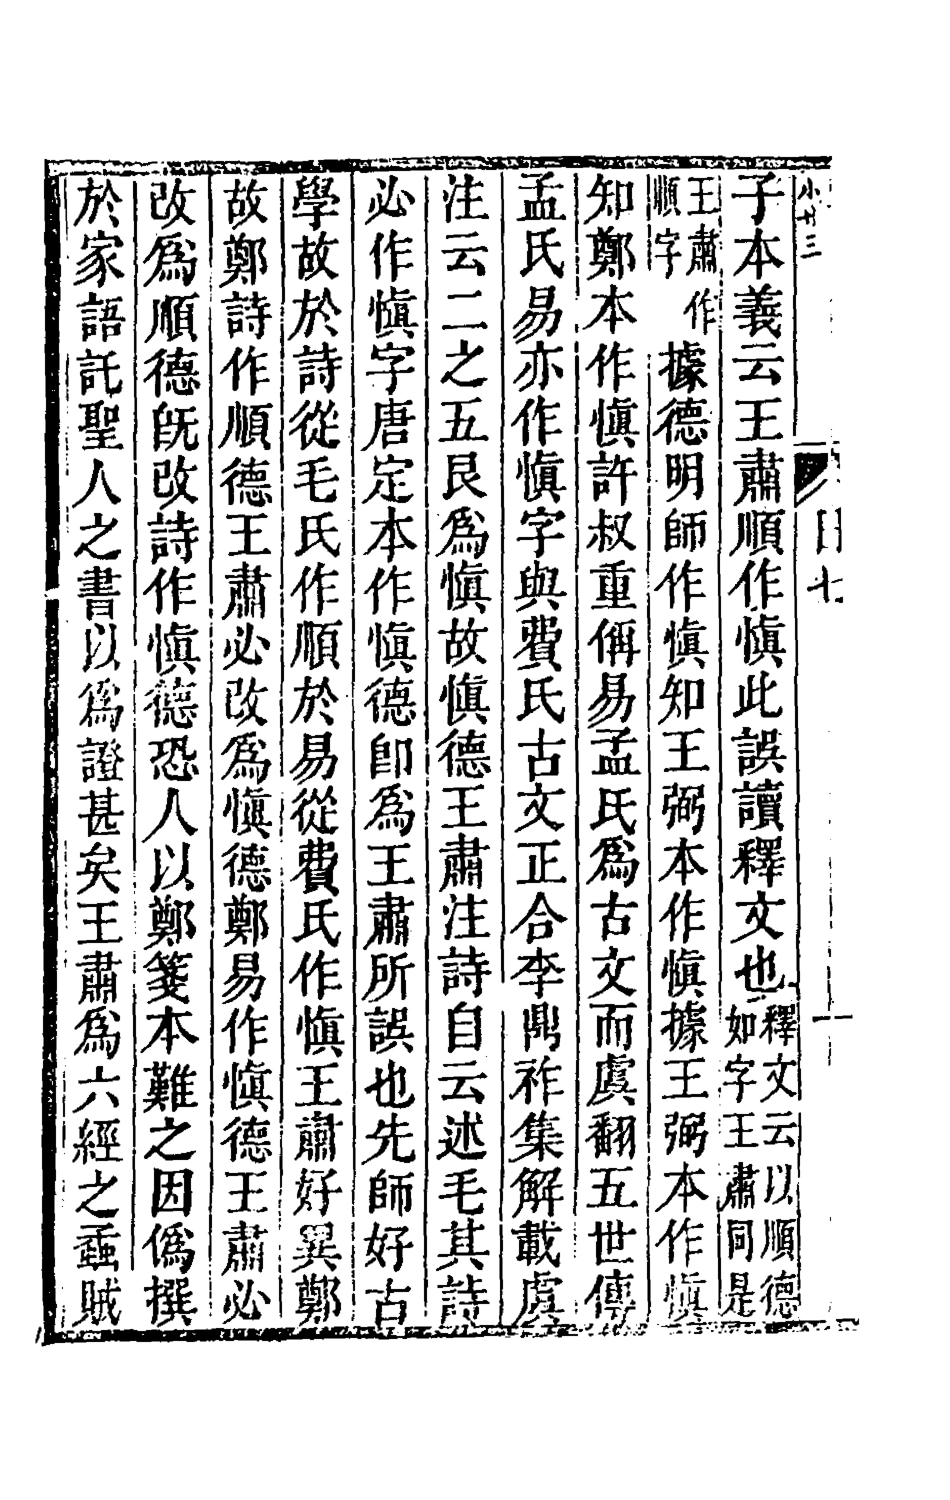 子本義云王肅順作慎此誤讀釋文也釋文云以順德如字王肅同是
王肅作順字據德明師作慎知王弼本作慎據王弼本作慎
知鄭本作慎許叔重偁易孟氏爲古文而虞翻五世傳
孟氏易亦作慎字與費氏古文正合李鼎祚集解載虞
注云二之五艮爲慎故慎德王肅注詩自云述毛其詩
必作慎字唐定本作慎德卽爲王肅所誤也先師好古
學故於詩從毛氏作順於易從費氏作慎王肅好異鄭
故鄭詩作順德王肅必改爲慎德鄭易作慎德王肅必
改爲順德旣改詩作慎德恐人以鄭箋本難之因僞撰
於家語託聖人之書以爲證甚矣王肅爲六經之蟊賊